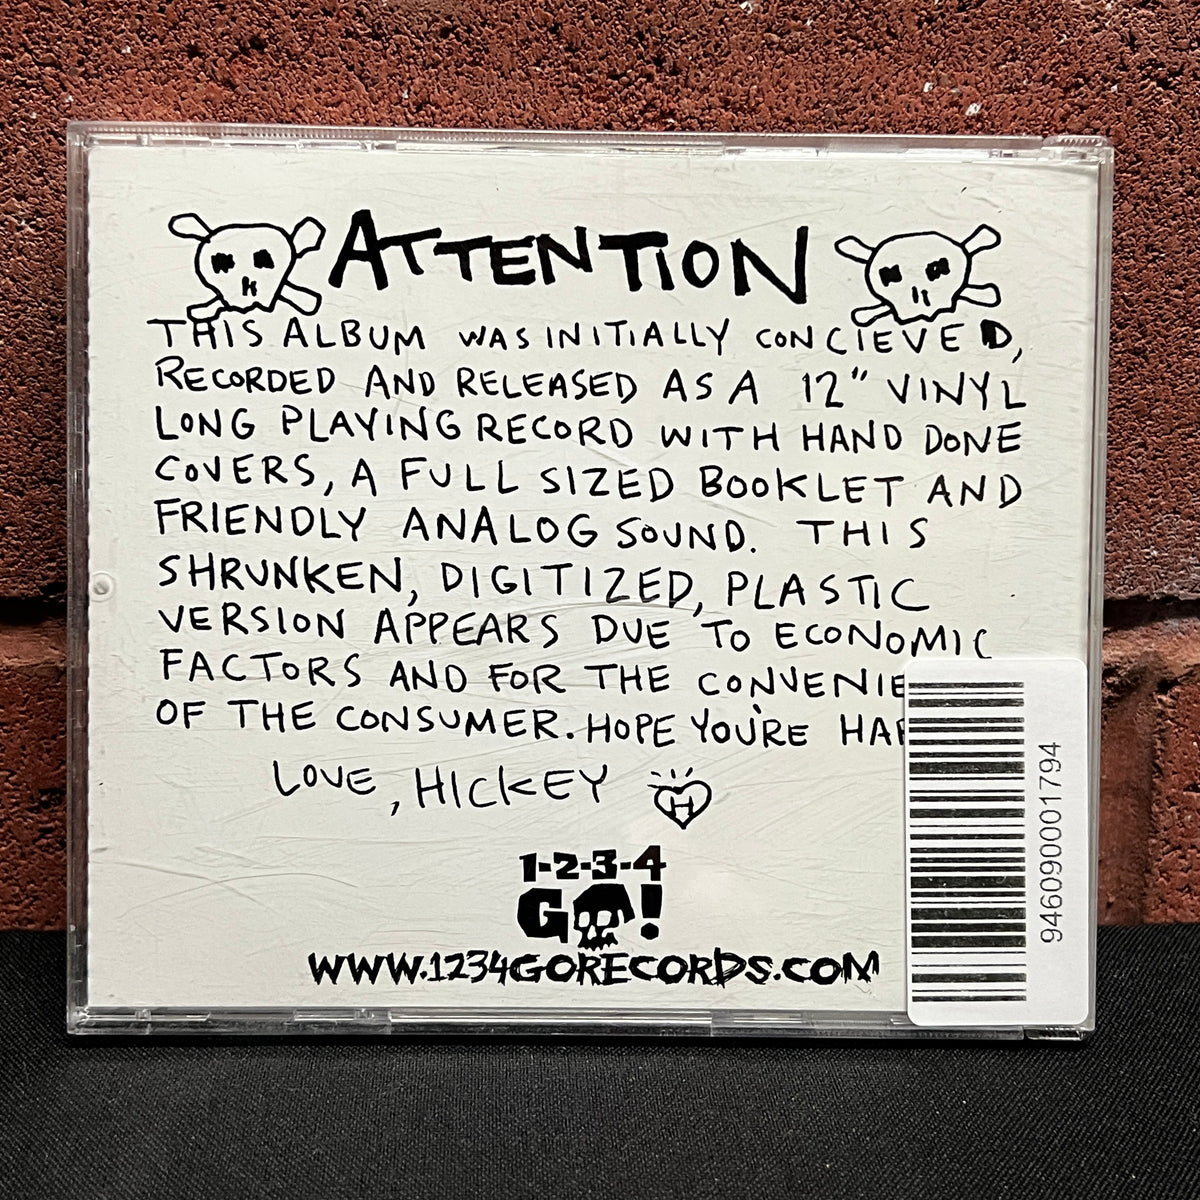 ATTENTION
THIS ALBUM WAS INITIALLY CONCIEVED,
RECORDED AND RELEASED AS A 12" VINYL
LONG PLAYING RECORD WITH HAND DONE
COVERS, A FULL SIZED BOOKLET AND
FRIENDLY ANALOG SOUND. THIS
SHRUNKEN, DIGITIZED, PLASTIC
VERSION APPEARS DUE TO ECONOMIC
FACTORS AND FOR THE
OF THE CONSUMER. HOPE YOU'RE
LOVE, HICKEY H
1-2-3-4
GO!
WWW.1234GORECORDS.COM
9460900001794